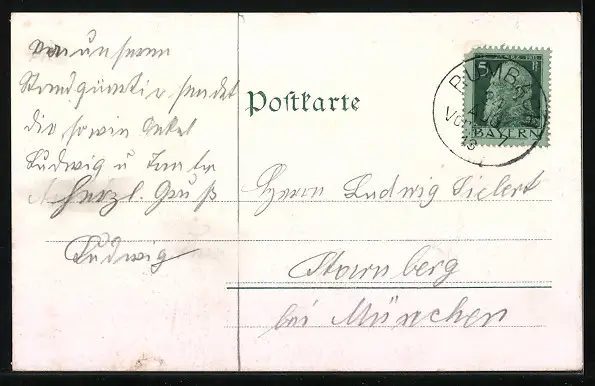 Von unserem
Standquartir sendet
dir sowie Onkel
Ludwig u Tante
herzl. Gruß
Ludwig
Postkarte
5 Pf
BAYERN
Herrn Ludwig Sielert
Starnberg
bei München